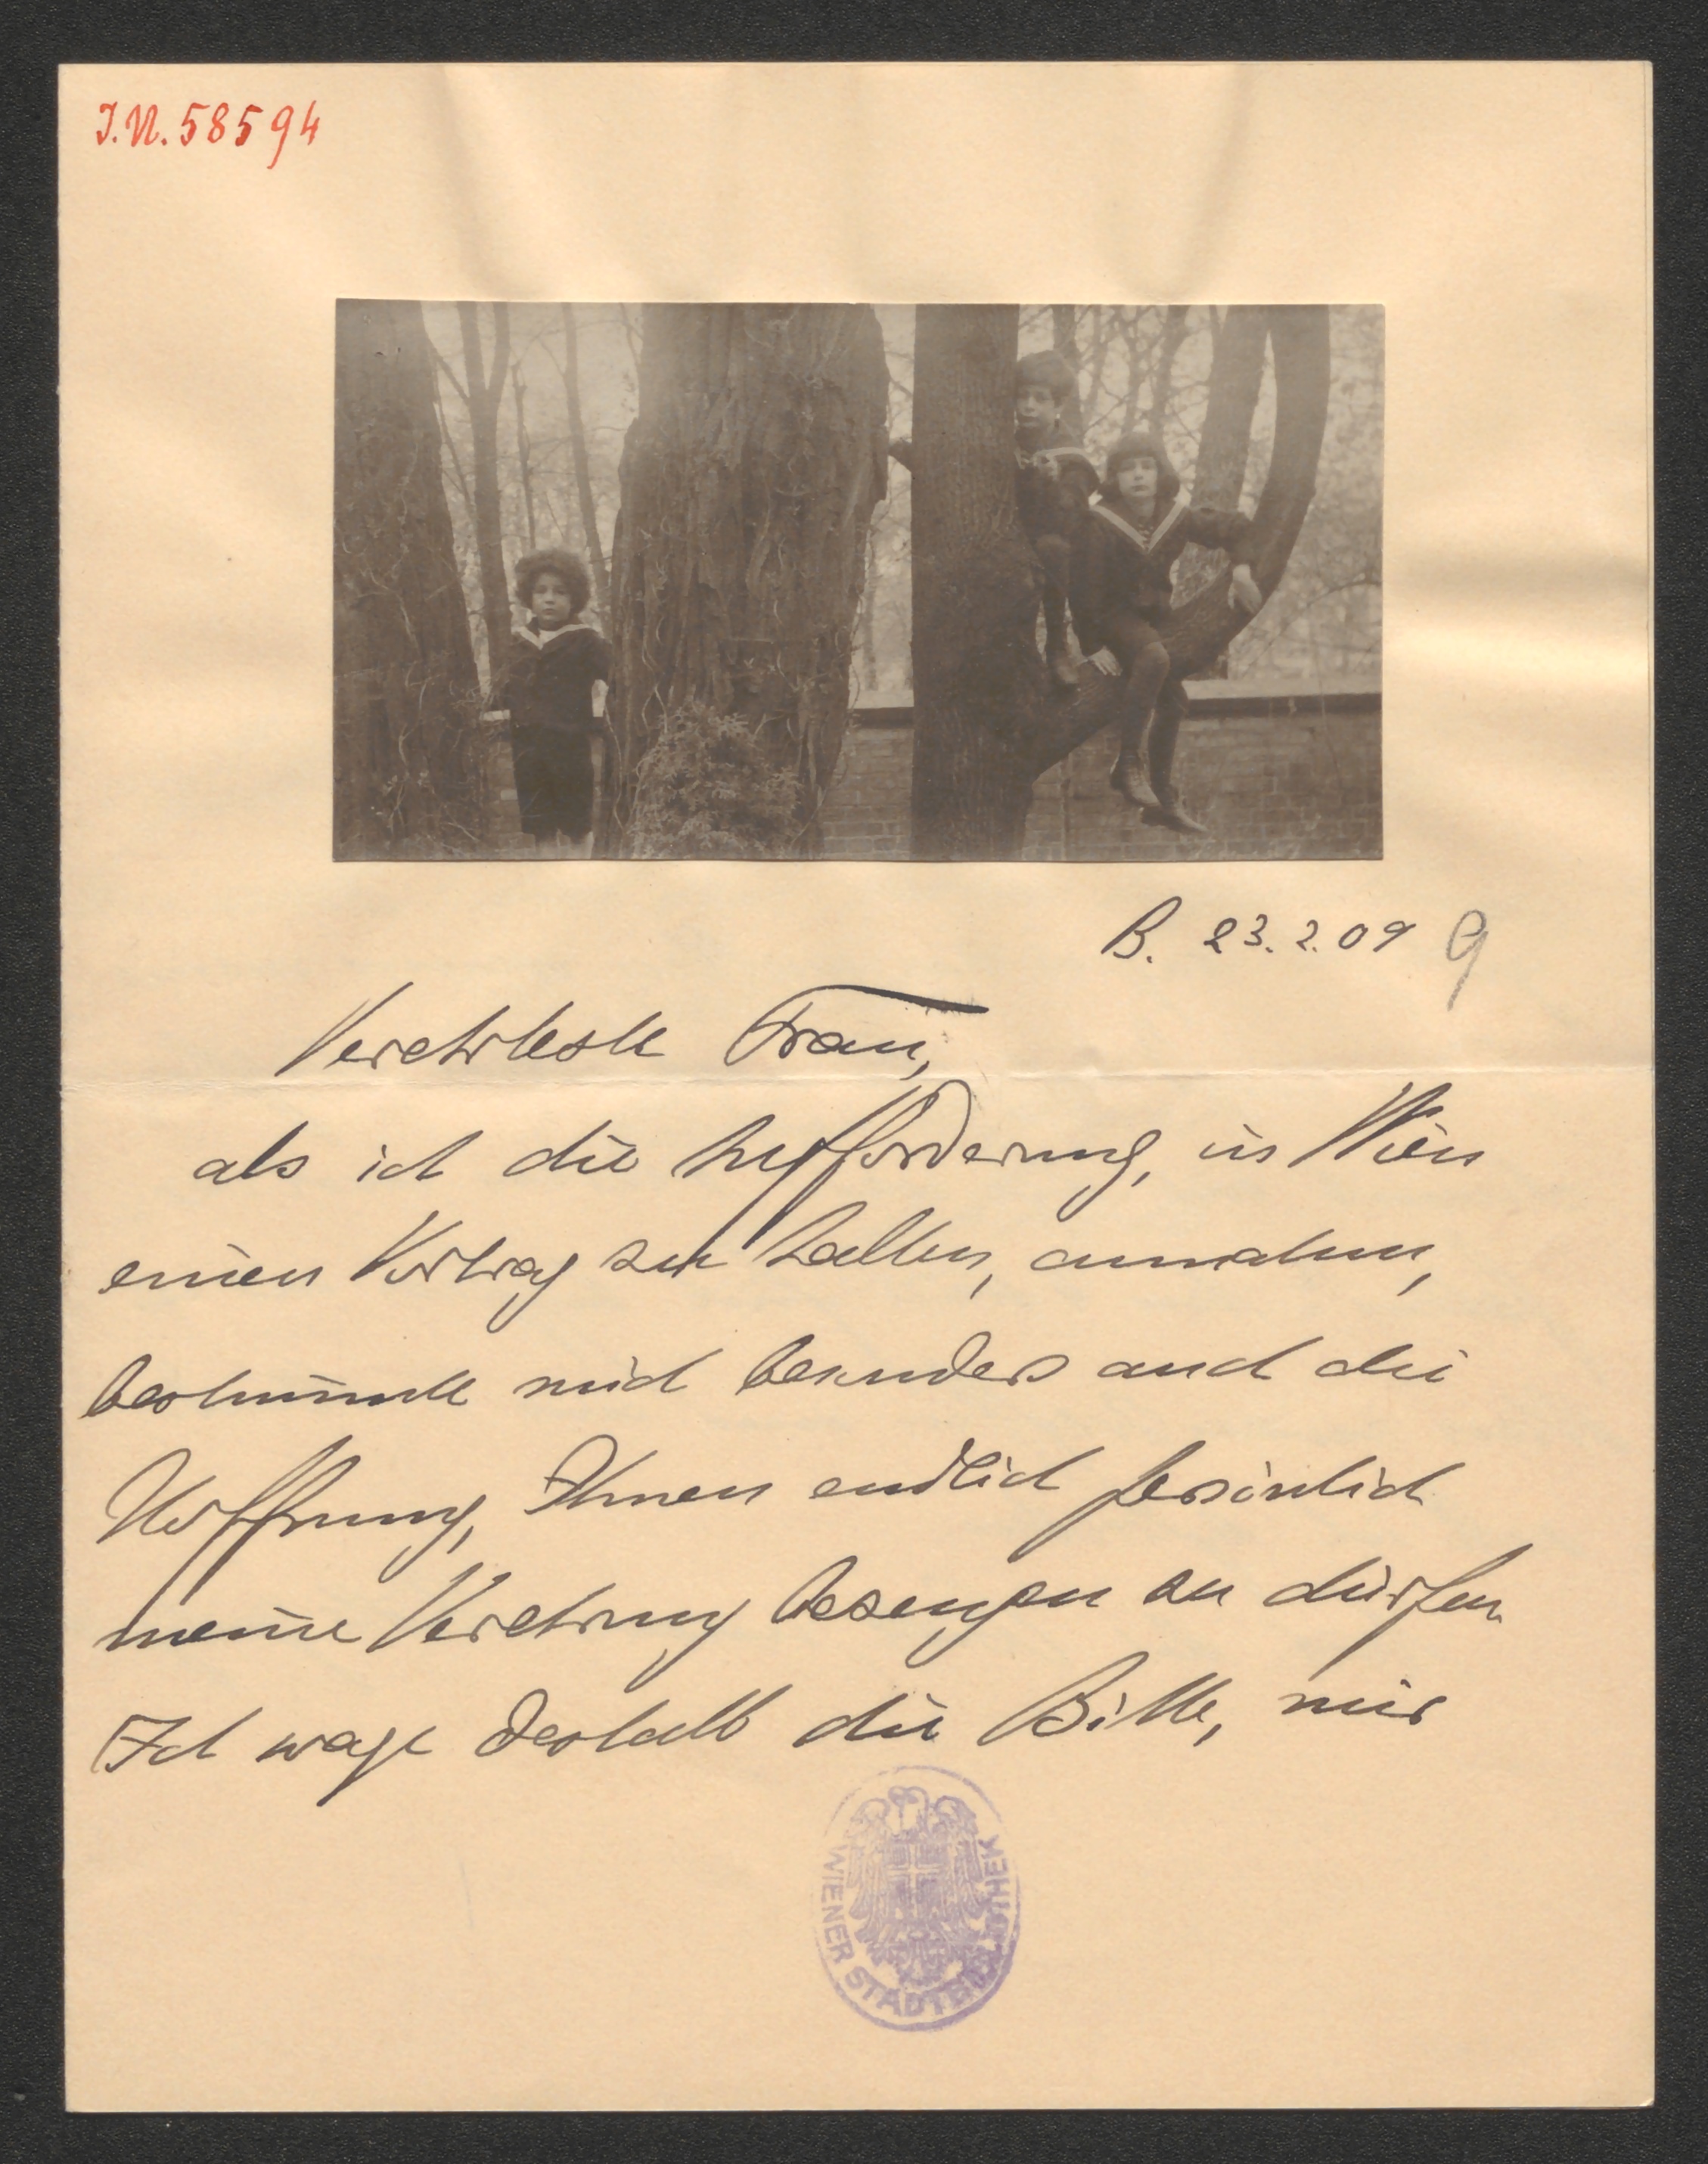 J.N. 58594
B. 23.2.09 9
Verehrteste Frau,
als ich die Aufforderung, in Wien
einen Vortrag zu halten, annahm,
bestimmte mich besonders auch die
Hoffnung, Ihnen endlich persönlich
meine Verehrung bezeugen zu dürfen.
Ich wage deshalb die Bitte, mir
WIENER STADTBIBLIOTHEK